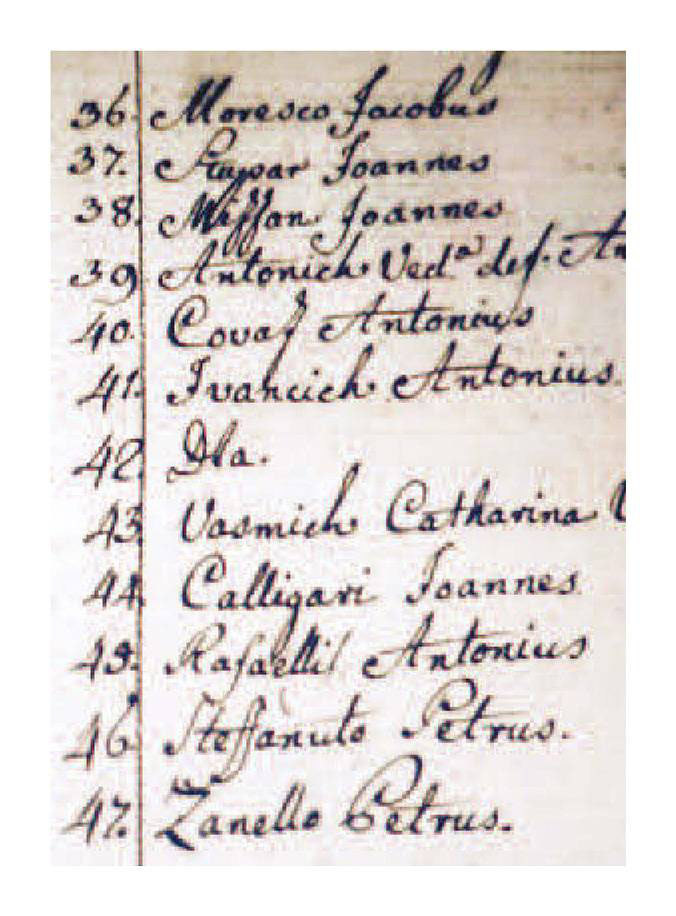 36. Moresco Jacobus
37. Stupar Joannes
38. Missan Joannes
39 Antonich Ved.ª def. An
40. Covaz Antonius
41. Ivancich Antonius.
42. Dta.
43 Vasmich Catharina V
44. Calligari Joannes
45. Rafaelli Antonius
46 Steffanuto Petrus.
47. Zanello Petrus.